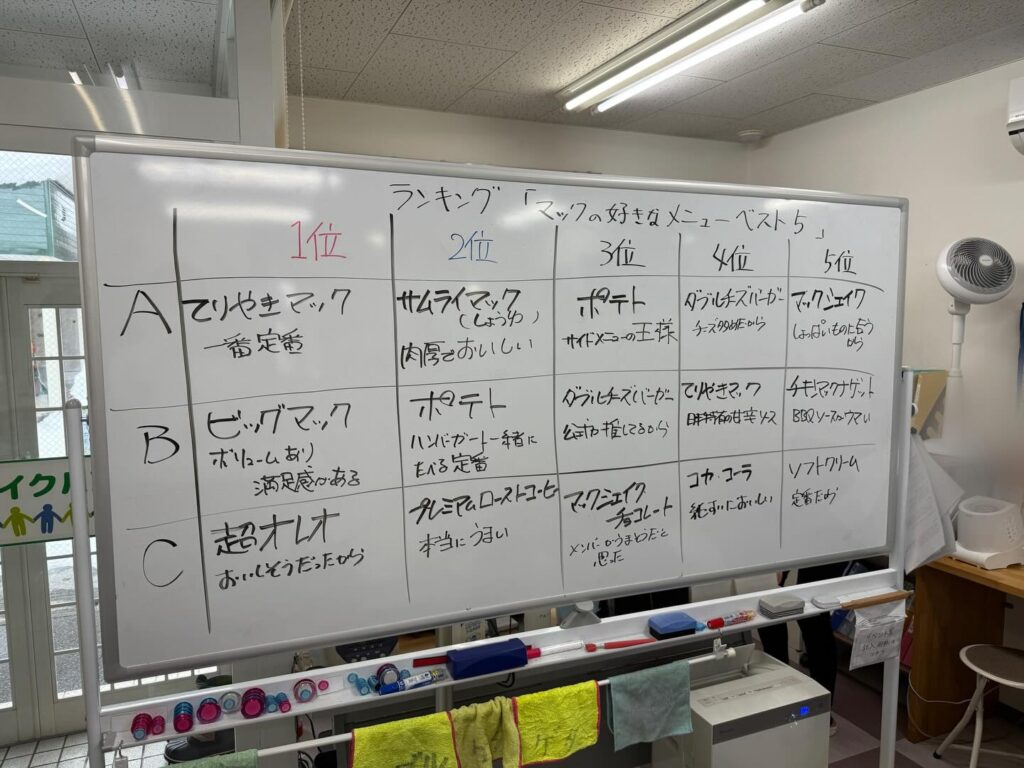 ランキング 「マックの好きなメニューベスト5」
1位 2位 3位 4位 5位
A
てりやきマック
一番定番
サムライマック
(しょうゆ)
肉厚でおいしい
ポテト
サイドメニューの王様
ダブルチーズバーガー
マックシェイク
しょっぱいものに合う
から
B
ビッグマック
ボリュームあり
満足感がある
ポテト
ハンバーガーと一緒に
たべる定番
ダブルチーズバーガー
推してるから
てりやきマック
甘辛ソース
チキンマックナゲット
BBQソースがウマい
C
超オレオ
おいしそうだったから
プレミアムローストコーヒー
本当にうまい
マックシェイク
チョコレート
メンバーがうまそうだと
思った
コカ・コーラ
純すいにおいしい
ソフトクリーム
定番だから
イクル